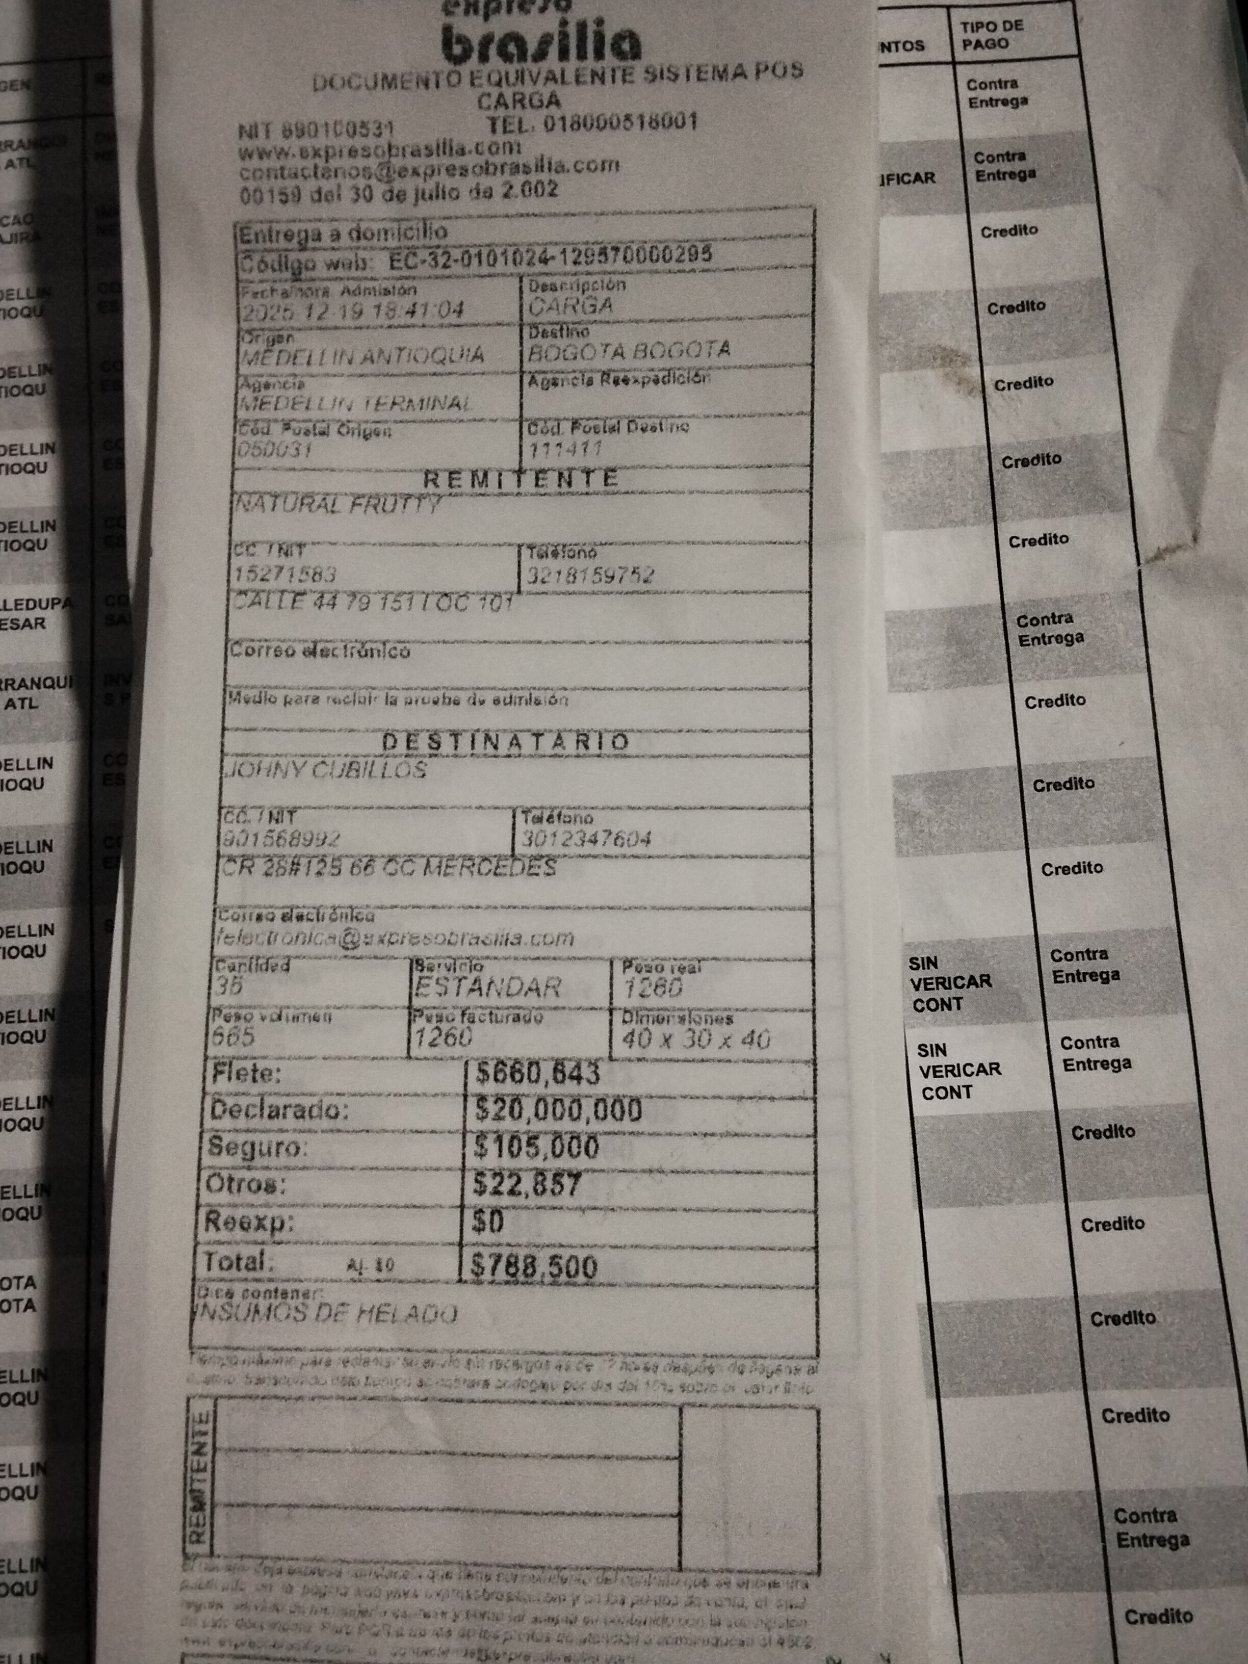 expreso
brasilia
DOCUMENTO EQUIVALENTE SISTEMA POS
CARGA
NIT 890100531 TEL. 018000518001
www.expresobrasilia.com
contactenos@expresobrasilia.com
00159 del 30 de julio de 2.002
Entrega a domicilio
Código web: EC-32-0101024-129570000295
Fecha/hora Admisión Descripción
2025 12 19 18:41:04 CARGA
Origen Destino
MEDELLIN ANTIOQUIA BOGOTA BOGOTA
Agencia Agencia Reexpedición
MEDELLIN TERMINAL
Cód. Postal Origen Cód. Postal Destino
050031 111411
REMITENTE
NATURAL FRUTTY
CC. / NIT Teléfono
15271583 3218159752
CALLE 44 79 151 LOC 101
Correo electrónico
Medio para recibir la prueba de admisión
DESTINATARIO
JOHNY CUBILLOS
CC. / NIT Teléfono
901568992 3012347604
CR 28#125 66 CC MERCEDES
Correo electrónico
felectronica@expresobrasilia.com
Cantidad Servicio Peso real
35 ESTANDAR 1260
Peso volumen Peso facturado Dimensiones
665 1260 40 x 30 x 40
Flete: $660,643
Declarado: $20,000,000
Seguro: $105,000
Otros: $22,857
Reexp: $0
Total: Aj. $0 $788,500
Dice contener:
INSUMOS DE HELADO
REMITENTE
NTOS
TIPO DE
PAGO
Contra
Entrega
IFICAR
Contra
Entrega
Credito
Credito
Credito
Credito
Credito
Contra
Entrega
Credito
Credito
Credito
SIN
VERICAR
CONT
Contra
Entrega
SIN
VERICAR
CONT
Contra
Entrega
Credito
Credito
Credito
Credito
Contra
Entrega
Credito
GEN
ATL
ELLIN
IOQU
ELLIN
IOQU
DELLIN
TIOQU
DELLIN
TIOQU
LLEDUPA
ESAR
RRANQUI
ATL
ELLIN
IOQU
ELLIN
IOQU
ELLIN
IOQU
ELLIN
IOQU
ELLIN
IOQU
ELLIN
OQU
OTA
OTA
ELLIN
OQU
ELLIN
OQU
ELLIN
OQU